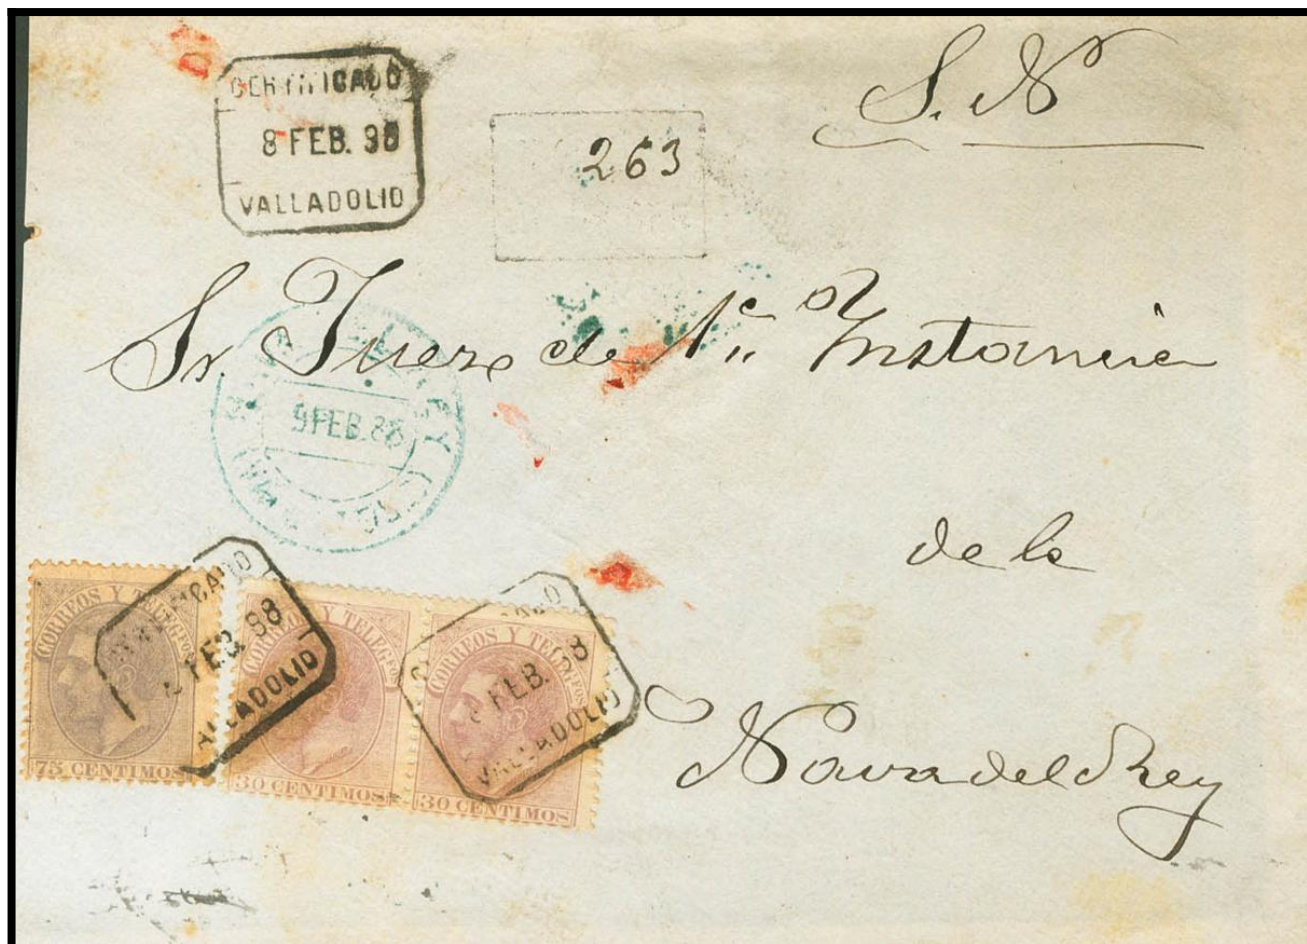 CERTIFICADO
8 FEB. 88
VALLADOLID
S. N
263
Sr. Juez de 1ª Instancia
9 FEB. 88
de la
Nava del Rey
CORREOS Y TELEGFOS
75 CENTIMOS
CERTIFICADO
FEB. 88
VALLADOLID
CORREOS Y TELEGFOS
30 CENTIMOS
CORREOS Y TELEGFOS
30 CENTIMOS
8 FEB. 88
VALLADOLID